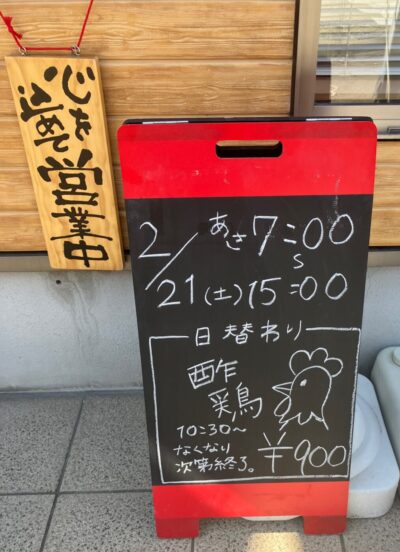 心を
込めて
営業中
2/21(土)
あさ7:00
S
15:00
日替わり
酢鶏
10:30~
なくなり
次第終了。
¥900